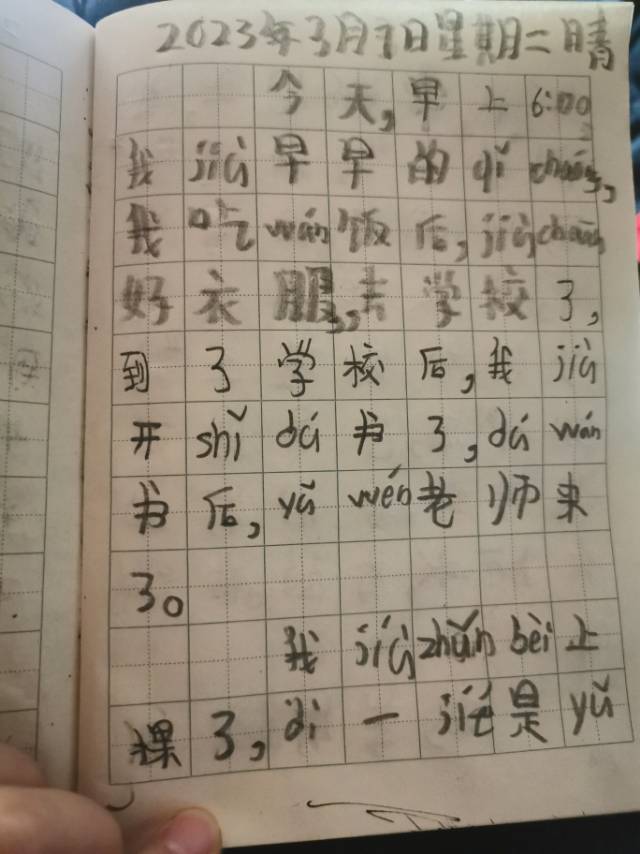 2023年3月7日星期二晴
今天,早上6:00
我jiù早早的qǐ chuáng,
我吃wán饭后,jiù chuān
好衣服,去学校了,
到了学校后,我jiù
开shǐ dú书了,dú wán
书后,yǔ wén老师来
了。
我jiù zhǔn bèi上
课了,dì一jiē是yǔ